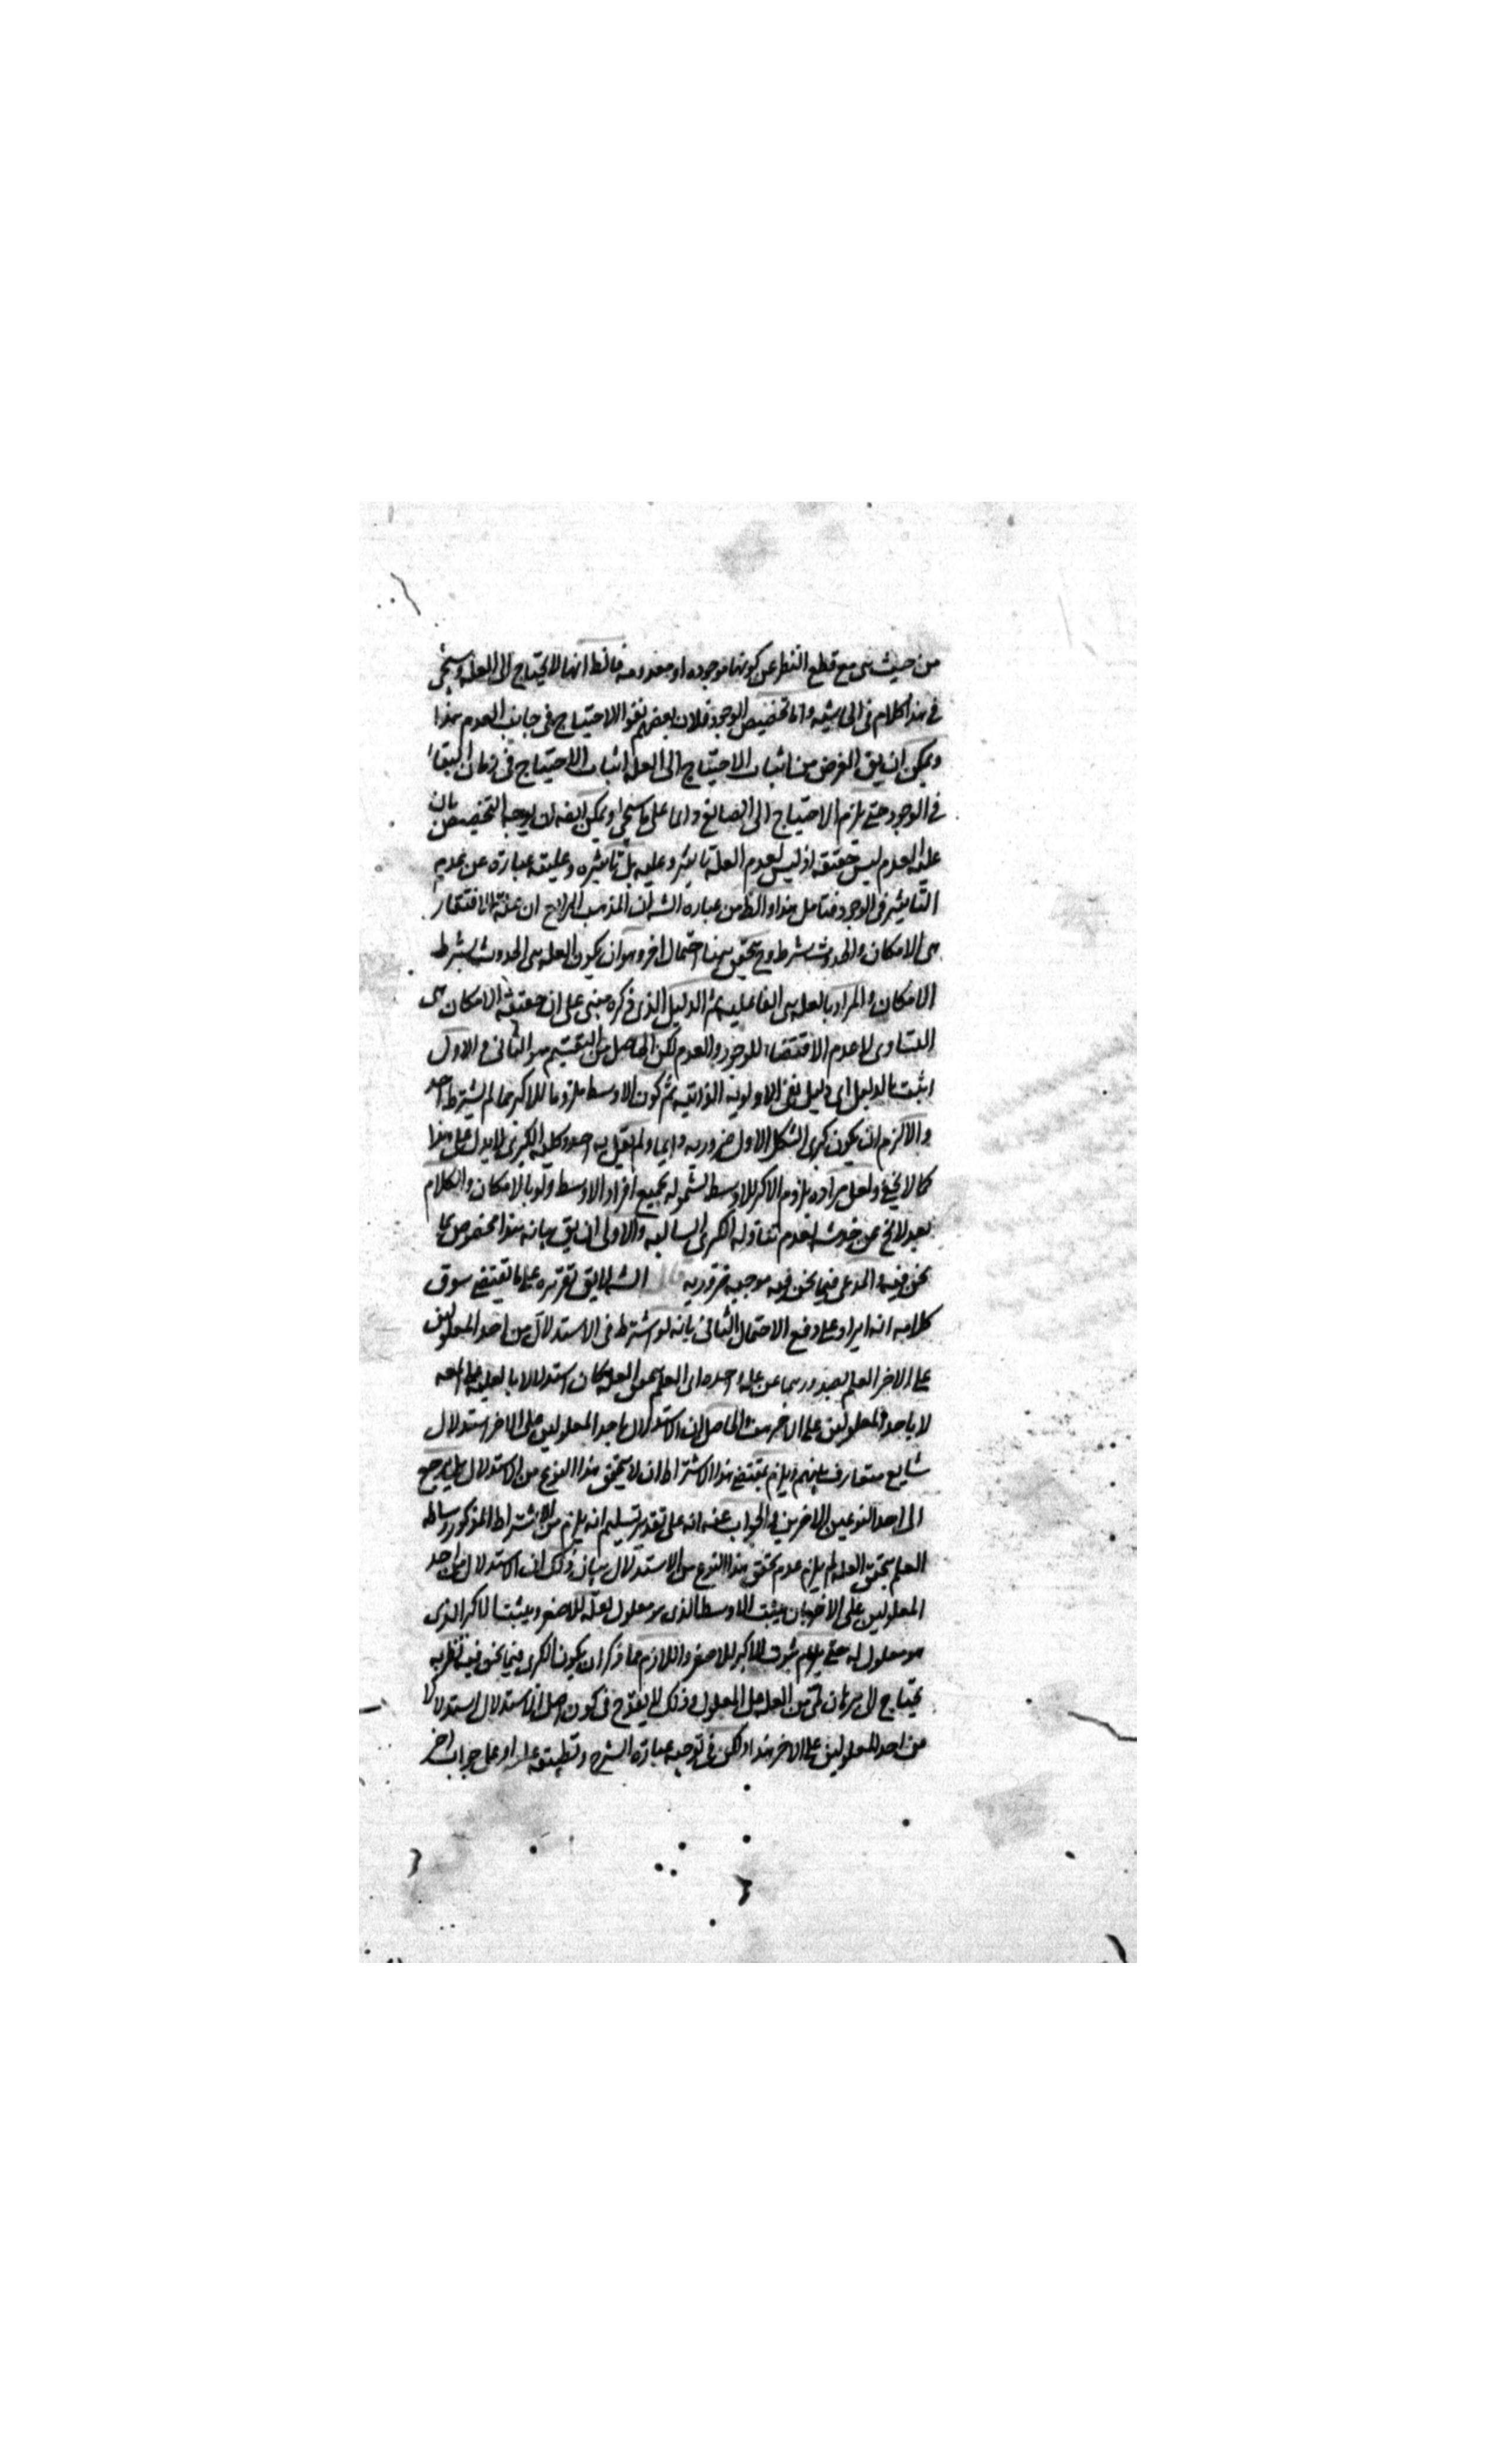 من حيث هى مع قطع النظر عن كونها موجوده او معدومه فالظ انها لا يحتاج الى العله وسيجئ
فى هذا كلام فى الحاشيه واما تخصيص الوجود فلان بعضهم نفوا الاحتياج فى جانب العدم هذا
ويمكن ان يق الغرض من اثبات الاحتياج الى العله اثبات الاحتياج فى زمان البقاء
فى الوجود حتى يلزم الاحتياج الى الصانع دائما على ما سيجئ ويمكن ايضا ان يوجه التخصيص بان
علة العدم ليس حقيقه اذ ليس لعدم العله تاثير وعليه بل تاثيره وعليته عباره عن عدم
التاثير فى الوجود فتامل هذا والظ من عباره الش ان المذهب الرابع ان علة الافتقار
هى الامكان والحدوث شرط وح يتحقق ههنا احتمال اخر وهو ان يكون العله هى الحدوث بشرط
الامكان والمراد بالعله هى الفاعليه ثم الدليل الذى ذكره مبنى على ان حقيقة الامكان هى
التساوى لا عدم الاقتضاء للوجود والعدم لكن الحاصل من التقسيم هو الثانى والاول
اثبت بالدليل اى دليل نفى الاولويه الذاتيه ثم كون الاوسط ملزوما للاكبر مما لم يشترط احد
والا لزم ان يكون كبرى الشكل الاول ضروريه دايما ولم يقل به احد وكلية الكبرى لا يدل على هذا
كما لا يخفى ولعل مراده بلزوم الاكبر للاوسط شموله بجميع افراد الاوسط ولو بالامكان والكلام
بعد لا يخ عن خدشه لعدم تناوله الكبرى السالبه والاولى ان يق بيانه هذا مخصوص بما
نحن فيه والمدعى فيما نحن فيه موجبه ضروريه قال الش تقريره على ما يقتضى سوق
كلامه انه ايراد على دفع الاحتمال الثانى بانه لو اشترط فى الاستدلال من احد المعلولين
على الاخر العلم بصدورهما عن عله واحده اى العلم بتحقق العله كان استدلالا بالعله على
لا باحد المعلولين على الاخر الحاصل ان الاستدلال باحد المعلولين على الاخر استدلال
شايع متعارف بينهم ويلزم بمقتضى هذا الاشتراط ان لا يتحقق هذا النوع من الاستدلال بل يرجع
الى احد النوعين الاخرين والجواب عنه انه على تقدير تسليم انه يلزم من الاشتراط المذكور وساطه
العلم بتحقق العله لم يلزم عدم تحقق هذا النوع من الاستدلال بيان ذلك ان الاستدلال من احد
المعلولين على الاخر بان يثبت الاوسط الذى هو معلول لعلة للاصغر ويثبت الاكبر الذى
هو معلول له حتى يلزم ثبوت الاكبر للاصغر واللازم مما ذكر ان يكون الكبرى فيما نحن فيه نظريه
يحتاج الى برهان لمى من العله على المعلول وذلك لا يقدح فى كون اصل الاستدلال استدلالا
من احد المعلولين على الاخر هذا ولكن فى توجيه عبارة الشرح وتطبيقه عليه او على جواب اخر